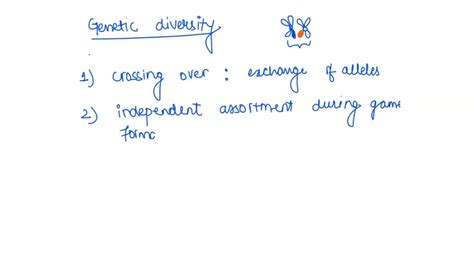 Genetic diversity
1) crossing over : exchange of alleles
2) independent assortment during game
forma